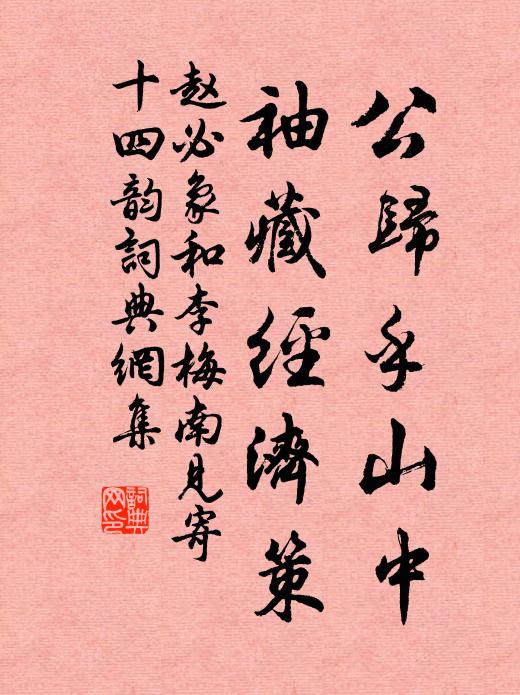 公歸乎山中
袖藏經濟策
赵必象和李梅南見寄
十四韵詞典網集
詞典网印